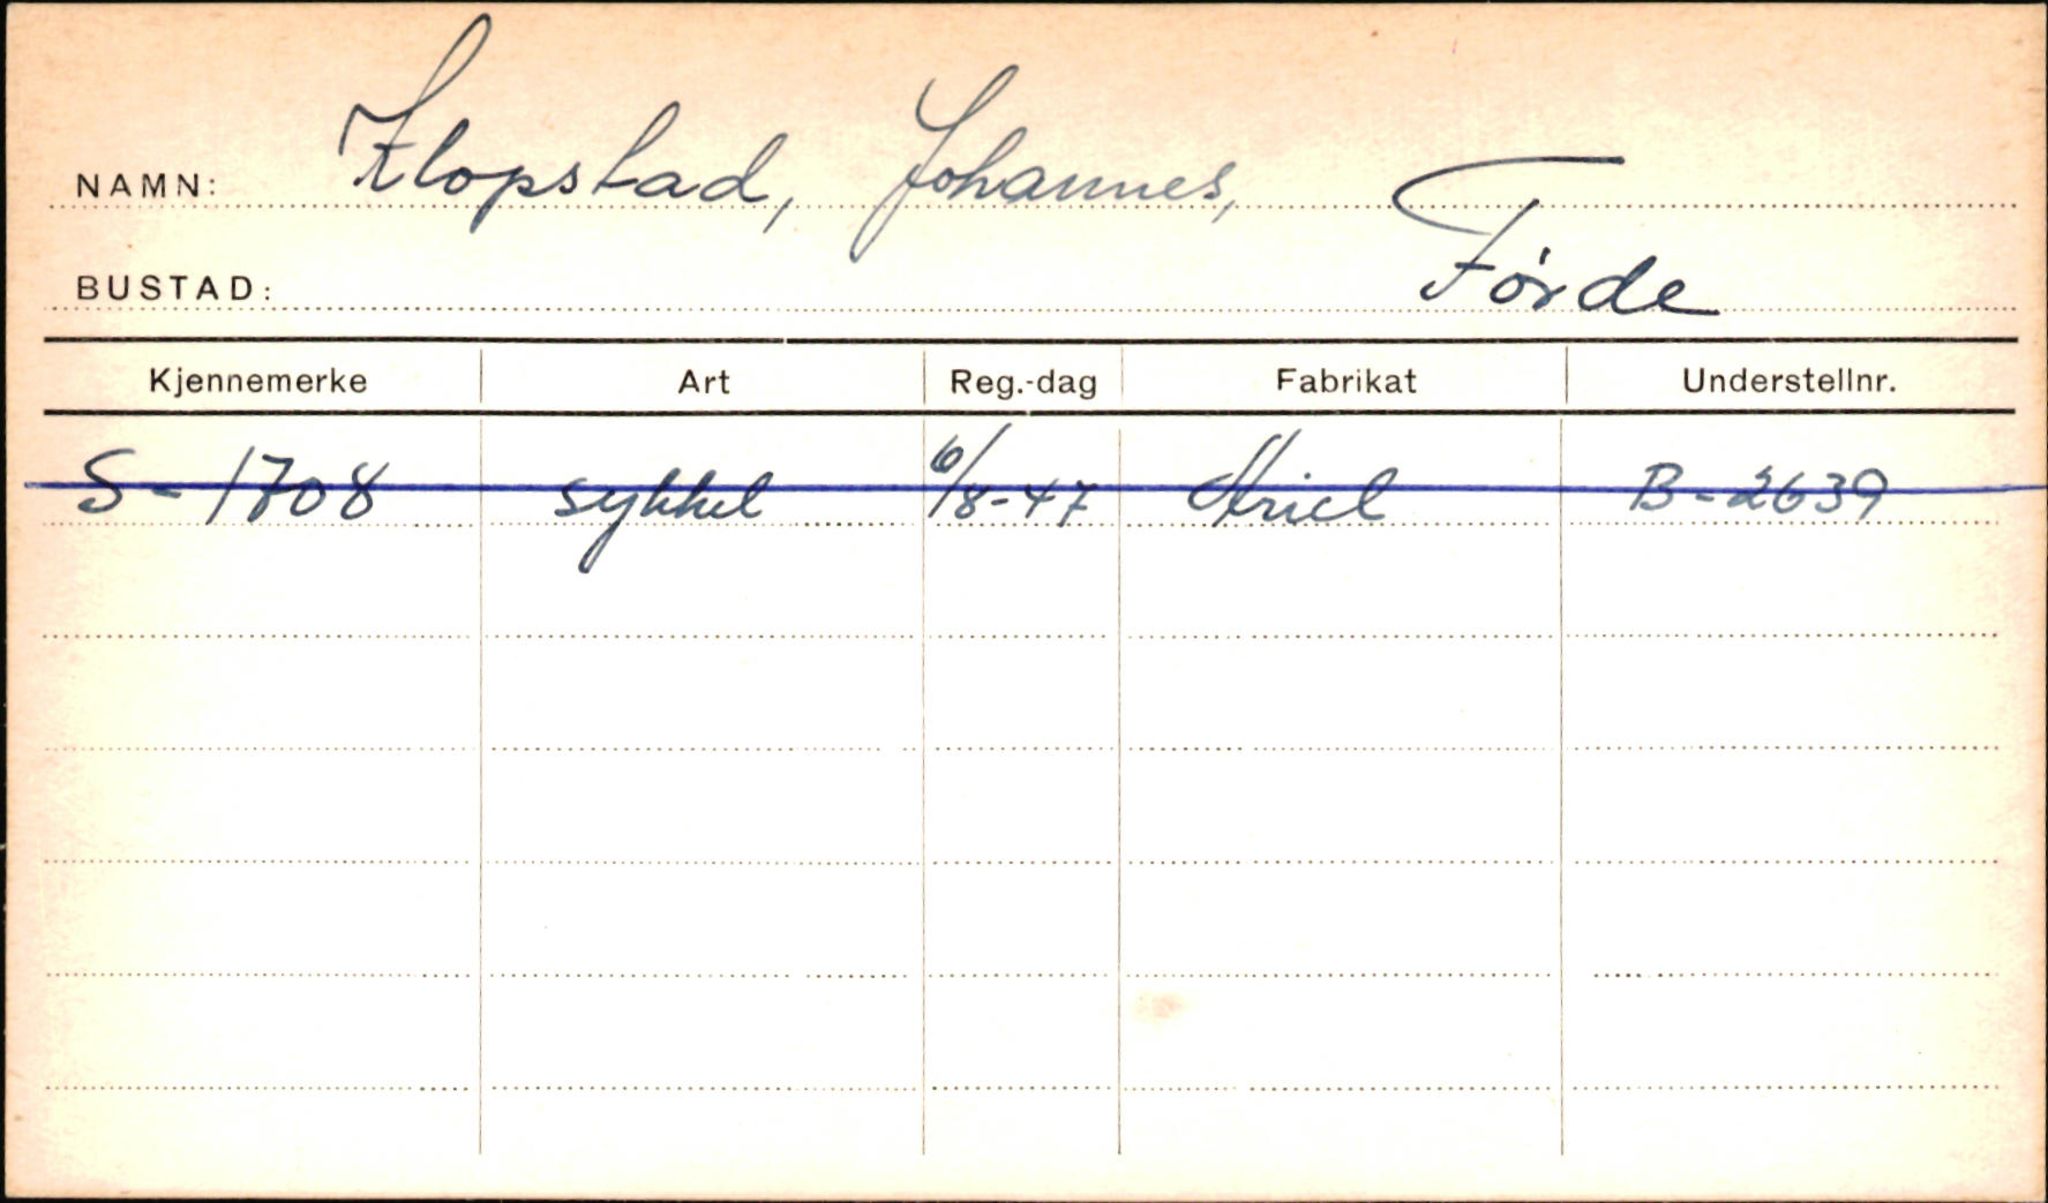 NAMN: Klopstad, Johannes,
BUSTAD: Førde
Kjennemerke Art Reg.-dag Fabrikat Understellnr.
S-1708 sykkel 6/8-47 Ariel B-2639